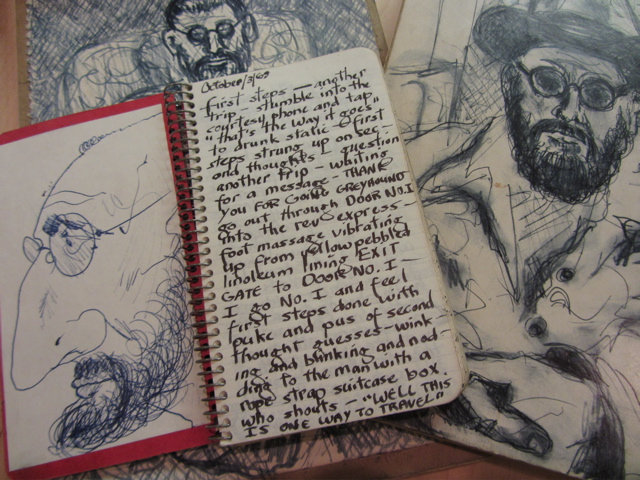 October/3/69
first steps — another
trip — stumble into the
courtesy phone and tap
"that's the way it goes"
to drunk static — first
steps strung up on sec-
ond thoughts I question
another trip — waiting
for a message — THANK
YOU FOR GOING GREYHOUND
go out through DOOR NO. I
into the rev express —
foot massage vibrating
up from yellow pebbled
linoleum lining EXIT
GATE to DOOR NO. I —
I go NO. I and feel
first steps done with
puke and pus of second
thought guesses — wink-
ing and blinking and nod-
ding to the man with a
rope strap suitcase box.
who shouts — "WELL THIS
IS ONE WAY TO TRAVEL"